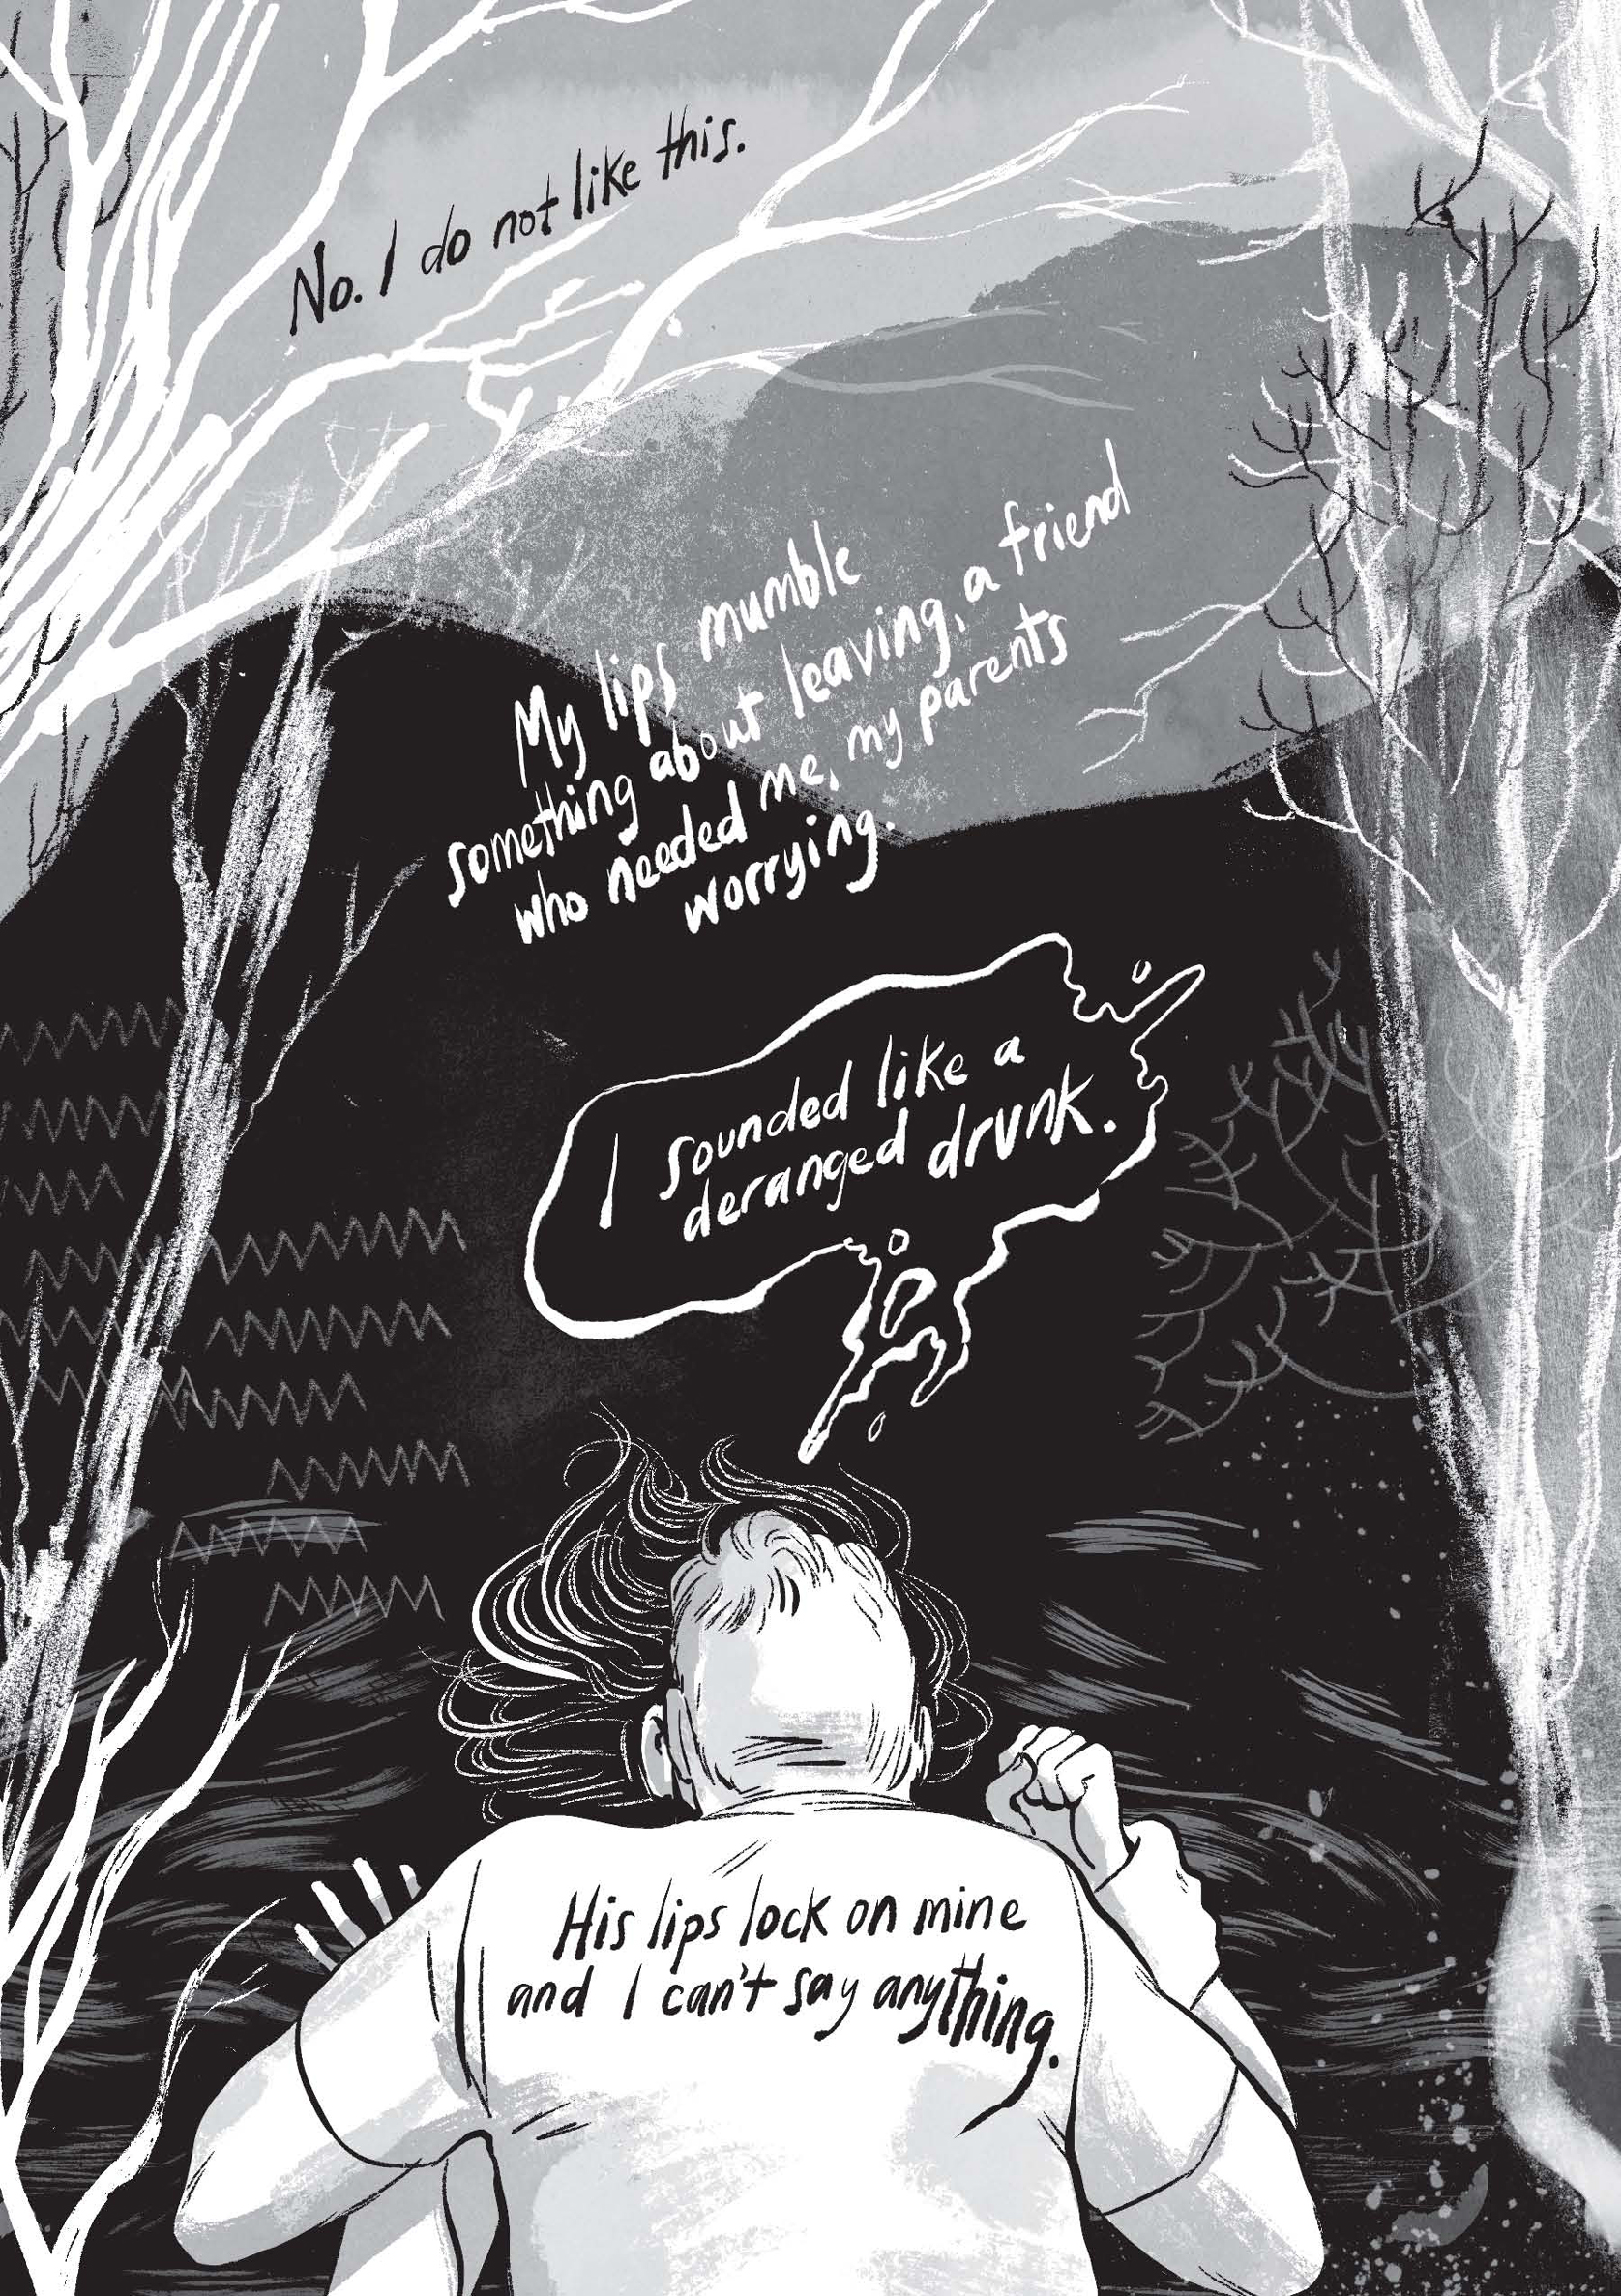 No. I do not like this.
My lips mumble
something about leaving, a friend
who needed me, my parents
worrying.
I sounded like a
deranged drunk.
His lips lock on mine
and I can't say anything.